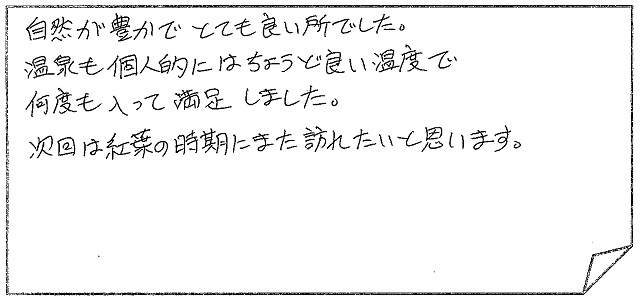 自然が豊かでとても良い所でした。
温泉も個人的にはちょうど良い温度で
何度も入って満足しました。
次回は紅葉の時期にまた訪れたいと思います。